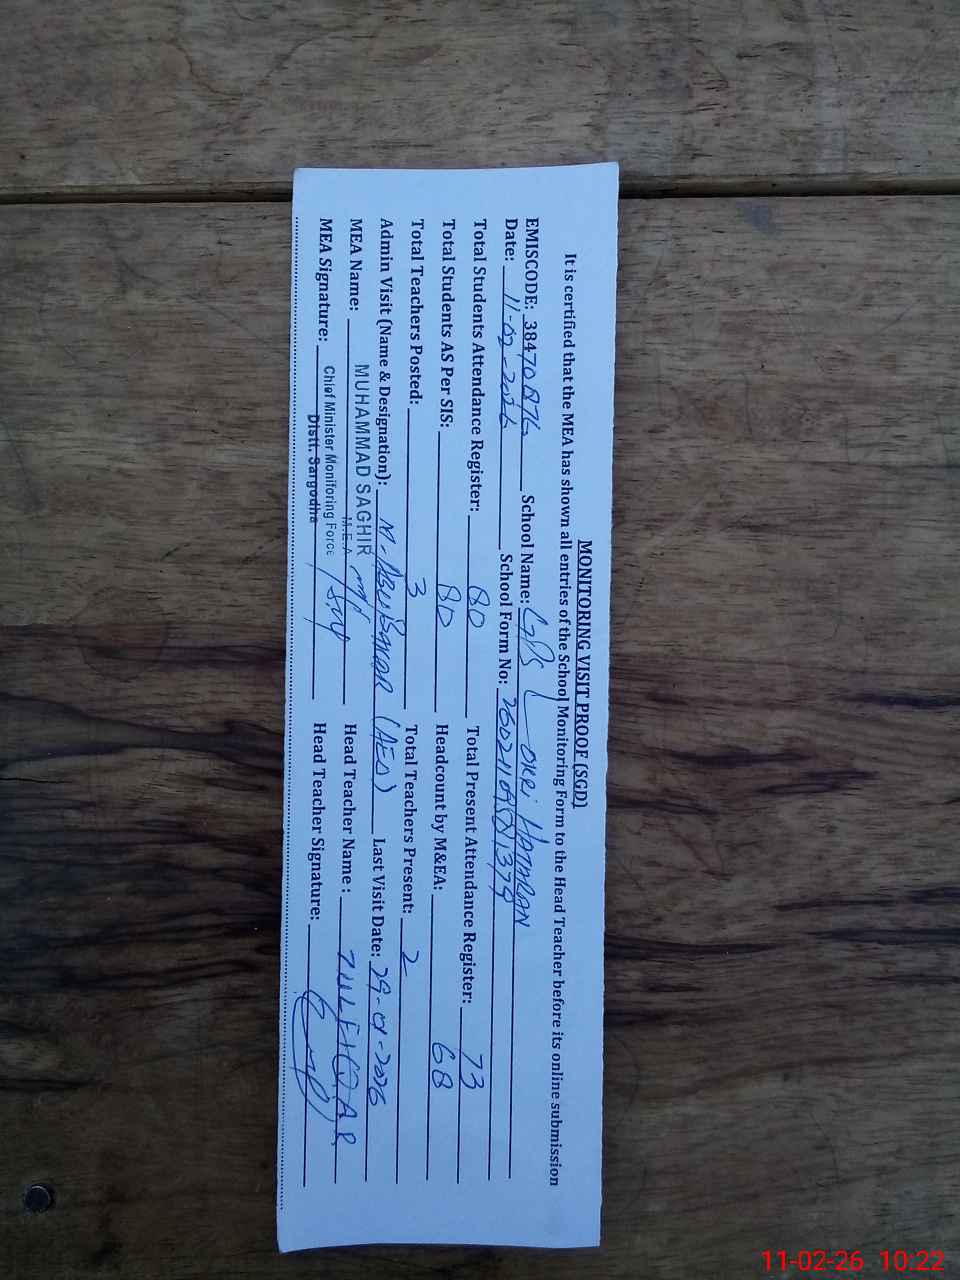 MONITORING VISIT PROOF (SGD)
It is certified that the MEA has shown all entries of the School Monitoring Form to the Head Teacher before its online submission
EMISCODE: School Name: GPS
Date: 11-02-2026 School Form No:
Total Students Attendance Register: 80 Total Present Attendance Register: 73
Total Students AS Per SIS: 80 Headcount by M&EA: 68
Total Teachers Posted: 3 Total Teachers Present: 2
Admin Visit (Name & Designation): M. (AEO) Last Visit Date: 29-01-2026
MEA Name: MUHAMMAD SAGHIR Head Teacher Name : ZULFIQAR
M.E.A
MEA Signature: Chief Minister Monitoring Force Head Teacher Signature:
Distt. Sargodha
11-02-26 10:22